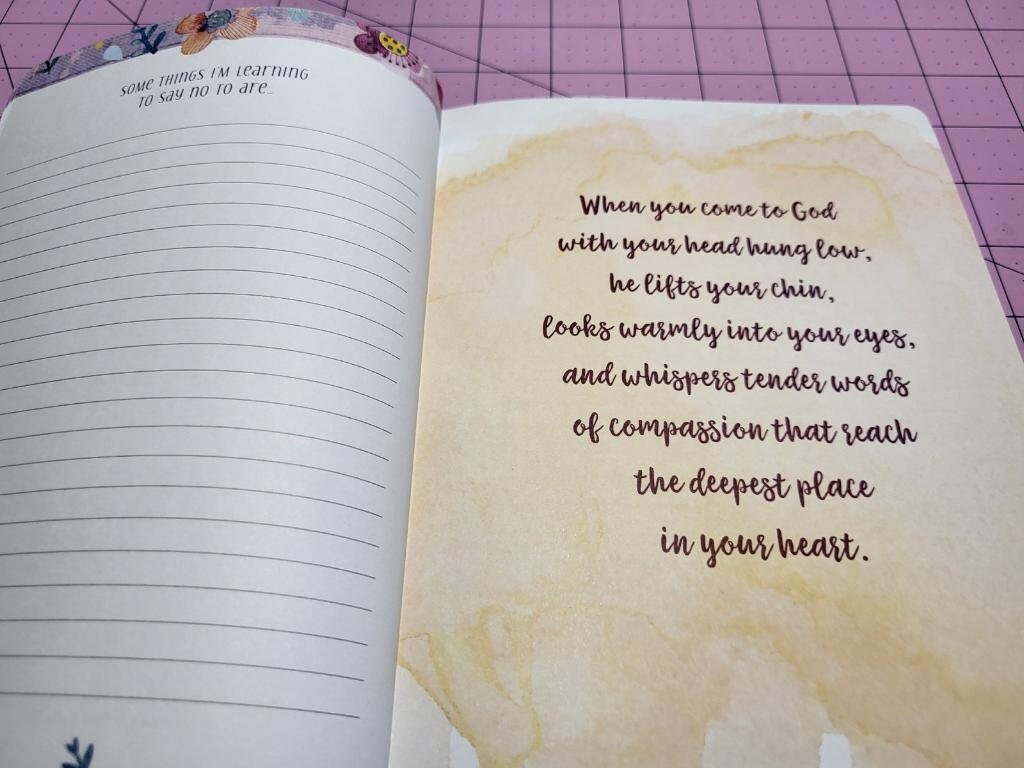 SOME THINGS I'M LEARNING
TO SAY NO TO ARE...
When you come to God
with your head hung low,
he lifts your chin,
looks warmly into your eyes,
and whispers tender words
of compassion that reach
the deepest place
in your heart.